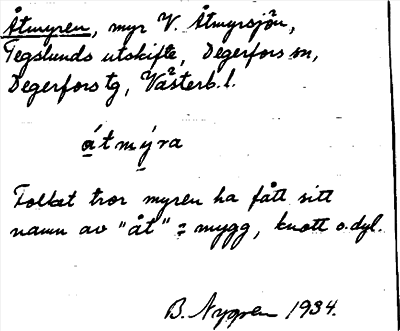 Åtmyren, myr V. Åtmyrsjön,
Tegslunds utskifte, Degerfors sn,
Degerfors tg, Västerb. l.
átmýra
Folket tror myren ha fått sitt
namn av "åt" = mygg, knott o.dyl.
B. Nygren 1934.